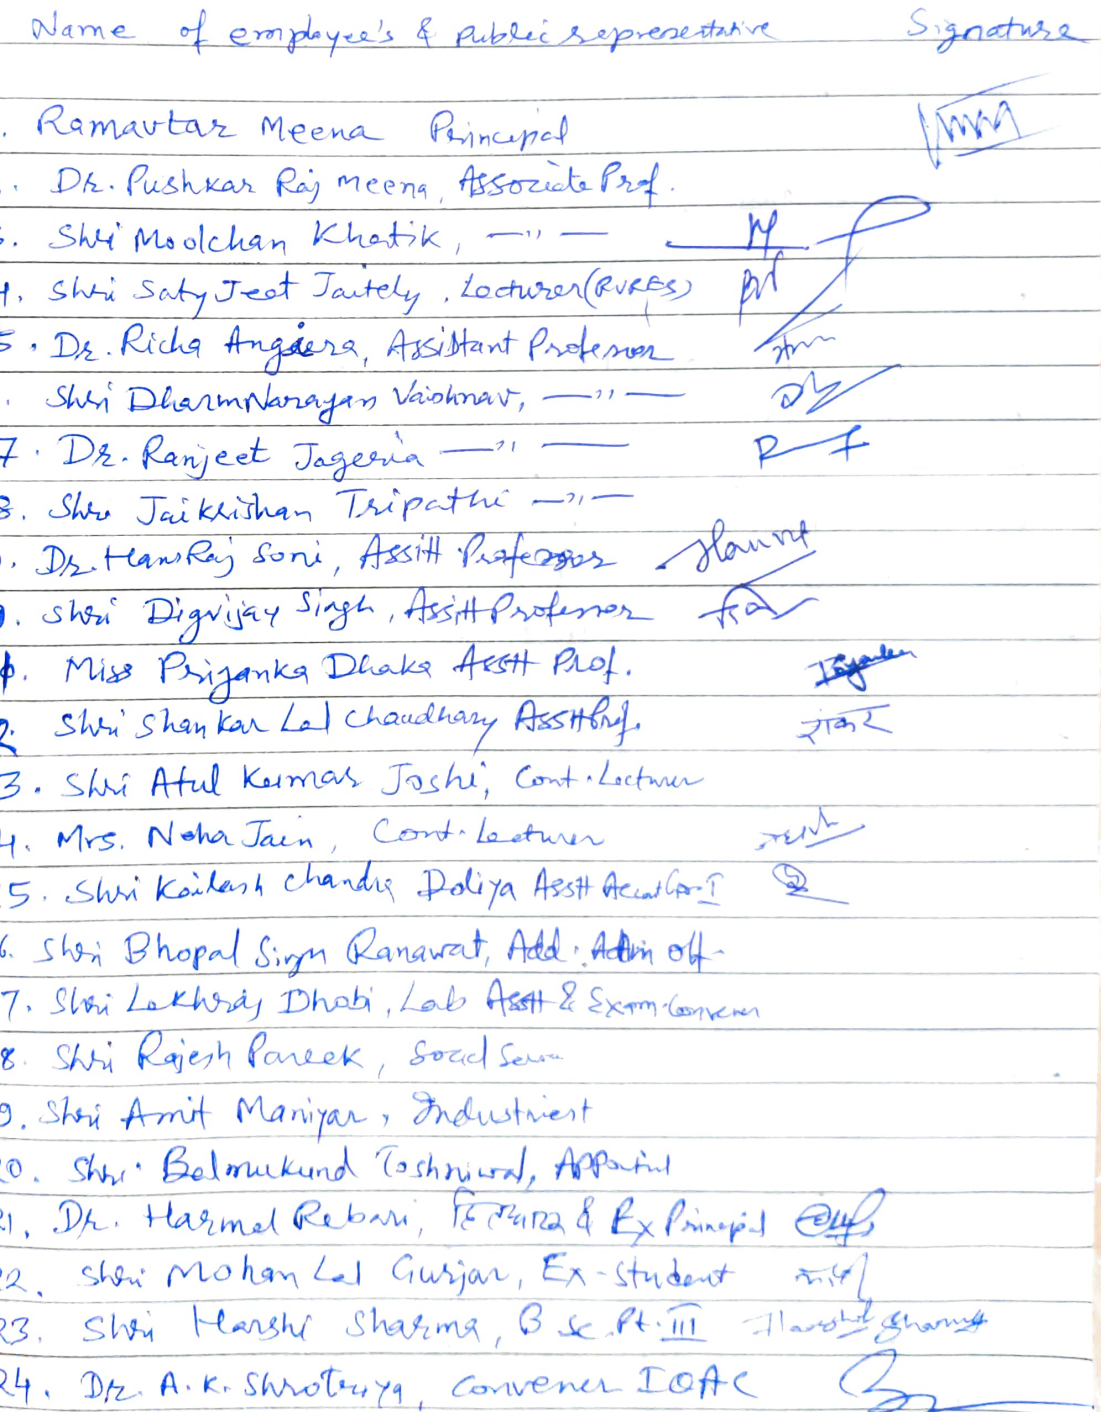 Name of employee's & public representative Signature
. Ramavtar Meena Principal
. Dr. Pushkar Raj Meena, Associate Prof.
3. Shri Moolchan Khatik, —"—
4. Shri Saty Jeet Jaitely, Lecturer (RVRES)
5. Dr. Richa Angiera, Assistant Professor
. Shri DharmNarayan Vaishnav, —"—
7. Dr. Ranjeet Jageria —"—
8. Shri Jaikrishan Tripathi —"—
. Dr. HansRaj Soni, Assitt Professor
0. Shri Digvijay Singh, Assitt Professor
. Miss Priyanka Dhaka Asstt Prof.
2. Shri Shankar Lal Chaudhary Asstt Prof. शंकर
3. Shri Atul Kumar Joshi, Cont. Lecturer
4. Mrs. Neha Jain, Cont. Lecturer
5. Shri Kailash Chandra Doliya Asstt Gr-I
6. Shri Bhopal Singh Ranawat, Add. Admin off.
7. Shri Lekhraj Dhobi, Lab Asstt & Exam. Convener
8. Shri Rajesh Pareek, Social
9. Shri Amit Maniyar, Industriest
20. Shri Balmukund Toshniwal,
21. Dr. Harmal Rebari, & Ex Principal
22. Shri Mohan Lal Gurjar, Ex-student
23. Shri Harshi Sharma, B Sc. Pt. III Harshit Sharma
24. Dr. A.K. Shrotriya, Convener IQAC